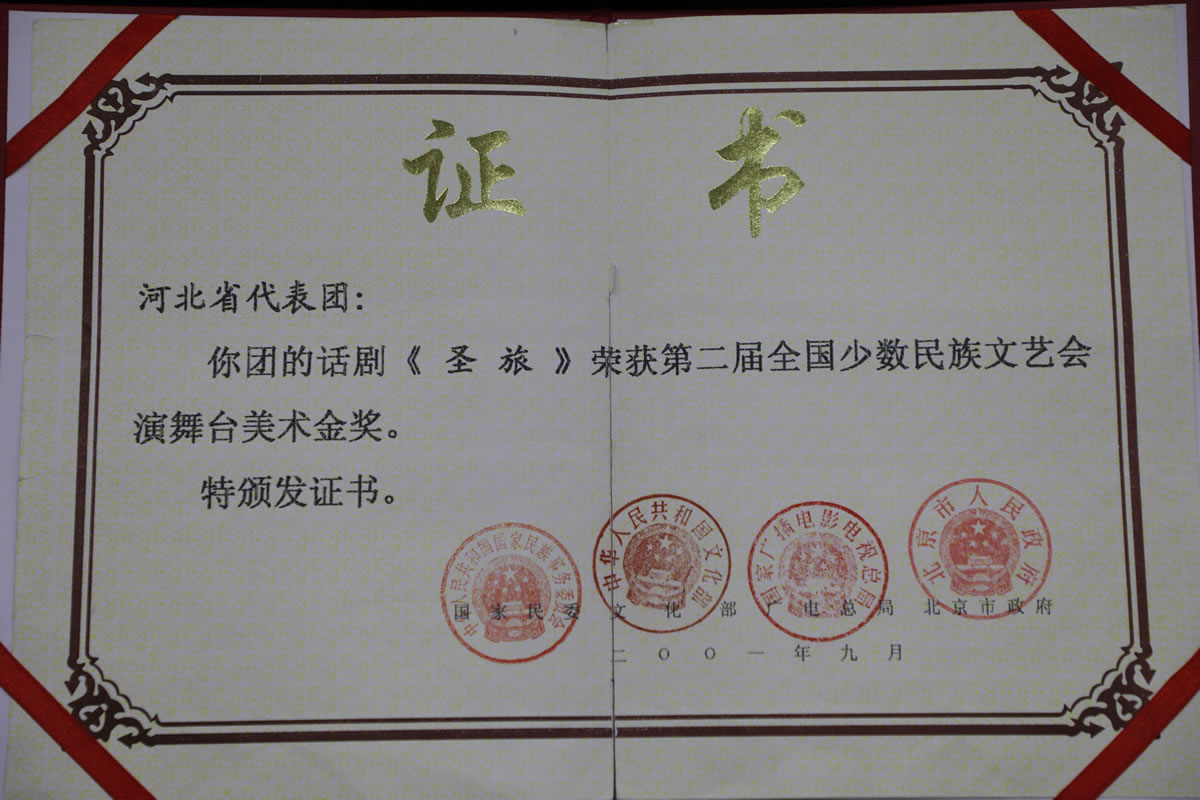 证书
河北省代表团：
你团的话剧《圣旅》荣获第二届全国少数民族文艺会
演舞台美术金奖。
特颁发证书。
中华人民共和国国家民族事务委员会
中华人民共和国文化部
国家广播电影电视总局
北京市人民政府
国家民委 文化部 广电总局 北京市政府
二〇〇一年九月